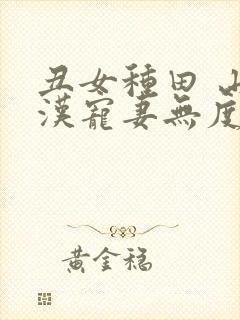 丑女種田 山
漢寵妻無度
黃金稳